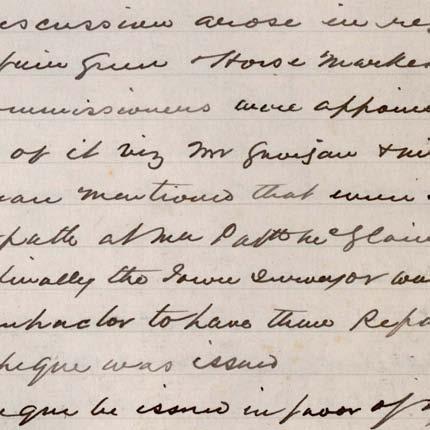 iscussion arose in re
Fair Green & Horse Market
ommissioners were appoin
of it viz Mr &
mentioned that
path at Mr Patk McGlain
Finally the Town Surveyor wa
ntractor to have them Repa
heque was issued
eque be issued in favor of